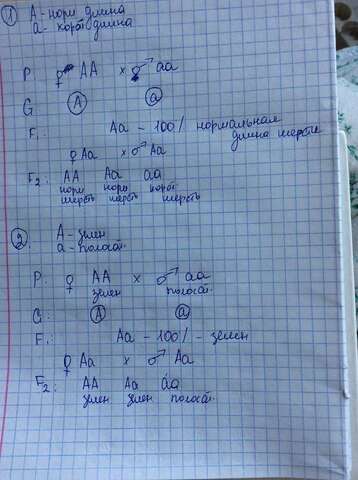 1 A - норм длина
a - корот длина
P ♀ AA x ♂ aa
G A a
F₁: Aa - 100% нормальная
длина шерсти
♀ Aa x ♂ Aa
F₂: AA Aa aa
норм норм корот
шерсть шерсть шерсть
2 A - зелен
a - полосат.
P: ♀ AA x ♂ aa
зелен полосат.
G: A a
F₁ Aa - 100% - зелен
♀ Aa x ♂ Aa
F₂: AA Aa aa
зелен зелен полосат.